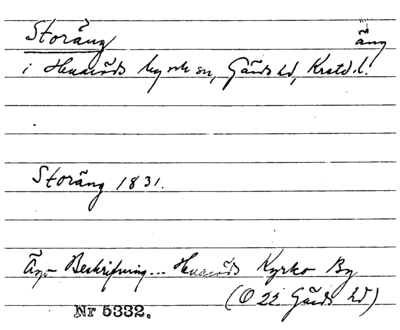 Storäng
äng
i Huaröds by och sn, Gärds hd, Krstd. l.
Storäng 1831.
Äga Beskrifning... Huaröds Kyrko By
(O 22 Gärds hd)
Nr 5332.